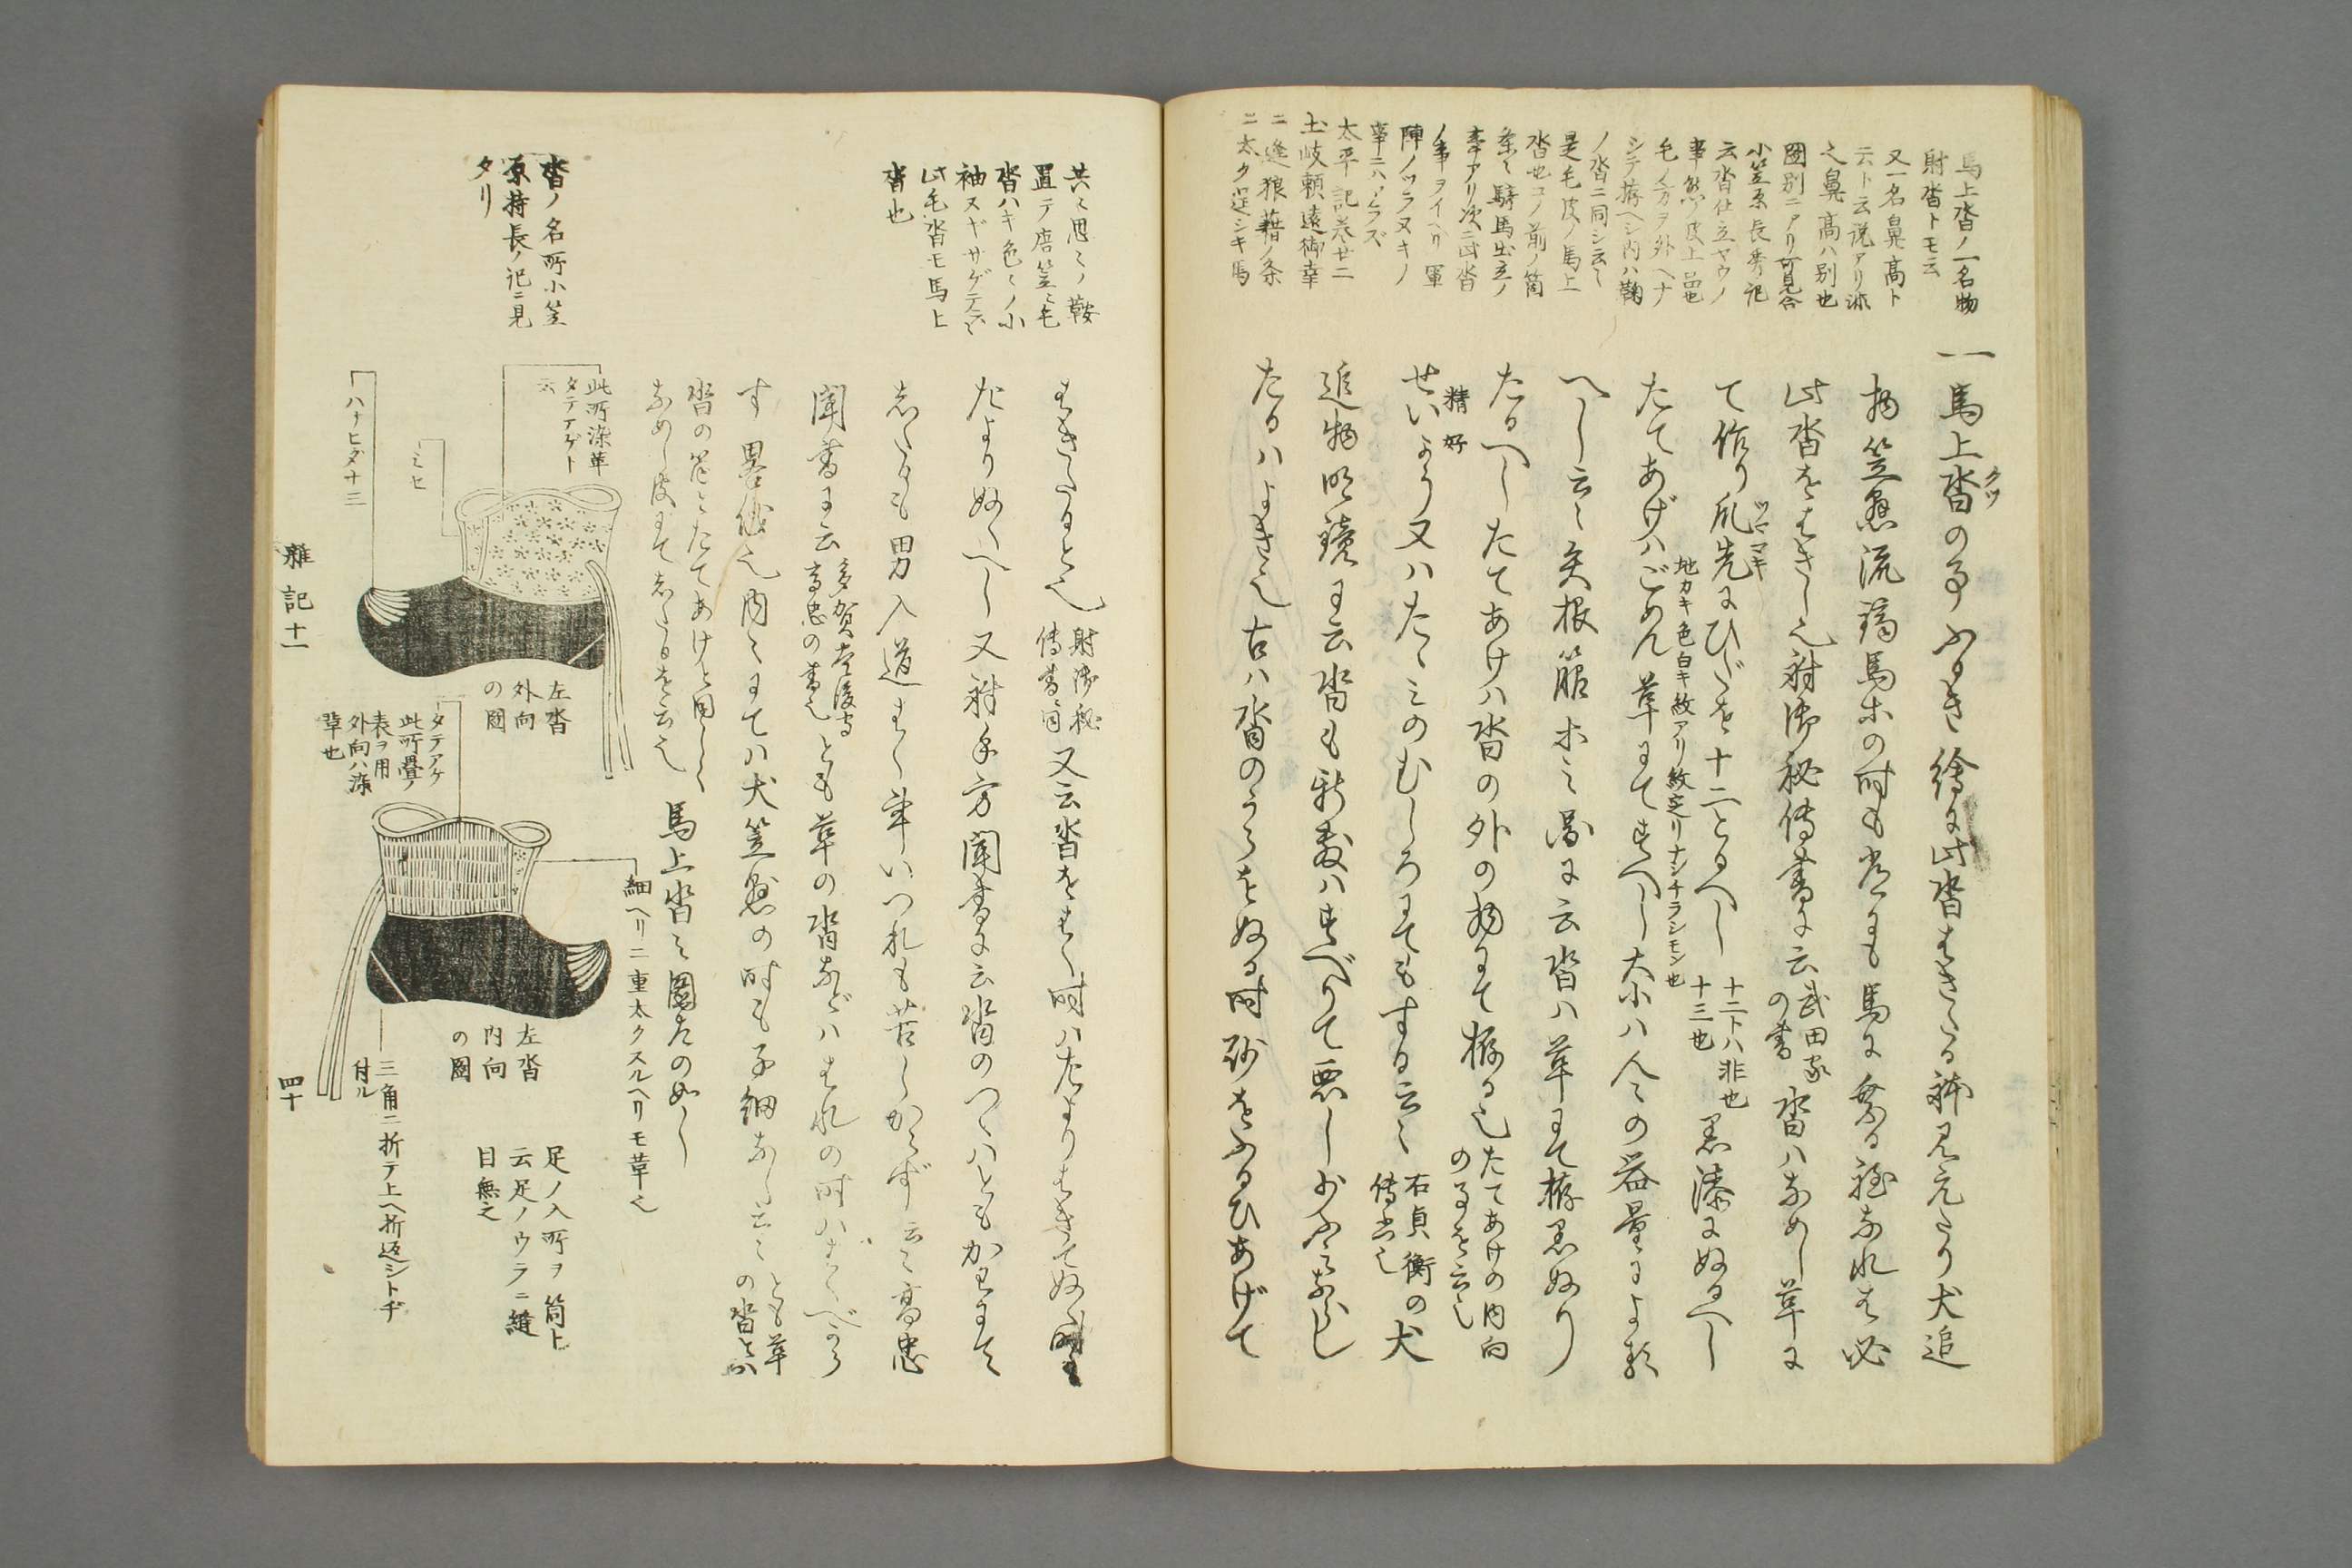 馬上沓ノ一名物
射沓トモ云
又一名鼻高ト
云ト云説アリ非
之鼻高ハ別也
圖別ニアリ可見合
小笠原長秀記
云沓仕立ヤウノ
事熊ノ皮上品也
毛ノ方ヲ外ヘナ
シテ拵ヘシ内ハ鞠
ノ沓ニ同シ云々
是毛皮ノ馬上
沓也コノ前ノ箇
条々騎馬出立ノ
事アリ次ニ此沓
ノ事ヲイヘリ軍
陣ノツラヌキノ
事ニハアラズ
太平記巻廿二
土岐頼遠御幸
ニ逢狼藉ノ条
ニ太ク逞シキ馬
一馬上沓の事ふるき繪に此沓はきたる躰見元たり犬追
クツ
物笠懸流鏑馬ホの時も常にも馬に乗る程なれは必
此沓をはきし也射御秘傳書に云
武田家
の書
沓ハなめし革に
て作り爪先にひだを十二とるへし
ツマサキ
十二トハ非也
十三也
黒漆にぬるへし
地カキ色白キ紋アリ紋定リナシチラシモン也
たてあげハごめん革にてすへし大小ハ人々の器量による
へし云々矢根節ホ之図に云沓ハ革にて拵黒ぬり
たるへしたてあけハ沓の外の物にて拵る也
たてあけの内向
の事を云也
精好
せいかう又ハたゝみのむしろにてもする云々
右貞衡の犬
傳书也
追物明鏡に云沓も新敷ハすべりて悪し少ふみならし
たるハよき也古ハ沓のうらをぬる時砂をふるひあげて
共々思々ノ鞍
置テ唐笠ニ毛
沓ハキ色々ノ小
袖ヌギサゲテ云々
此毛沓モ馬上
沓也
はきたると也
射御秘
傳書ニ同
又云沓をはく時ハ左よりはきてぬく時も
左よりぬくへし又躾手方聞書に云沓のつゝハともかわにて
したるも男入道はく年いつれも苦しからず云々高忠
聞書に云
多賀豊後守
高忠の書也
とも革の沓などハはれの時ハはくべから
す畧儀也内々にてハ犬笠懸の時も子細なし云々
とも革
の沓とハ
沓の筒とたてあけと同しく
なめし皮にてしたるを云也
馬上沓之圖左の如し
沓ノ名所小笠
原持長ノ記ニ見
タリ
此所染革
タテアゲト
云
ミセ
ハナヒダ十三
左沓
外向
の圖
タテアケ
此所疊ノ
表ヲ用
外向ハ染
革也
細ヘリ二重太クスルヘリモ革也
左沓
内向
の圖
三角ニ折テ上ヘ折返シトヂ
付ル
足ノ入所ヲ筒ト
云足ノウラニ縫
目無之
雜記十一
四十